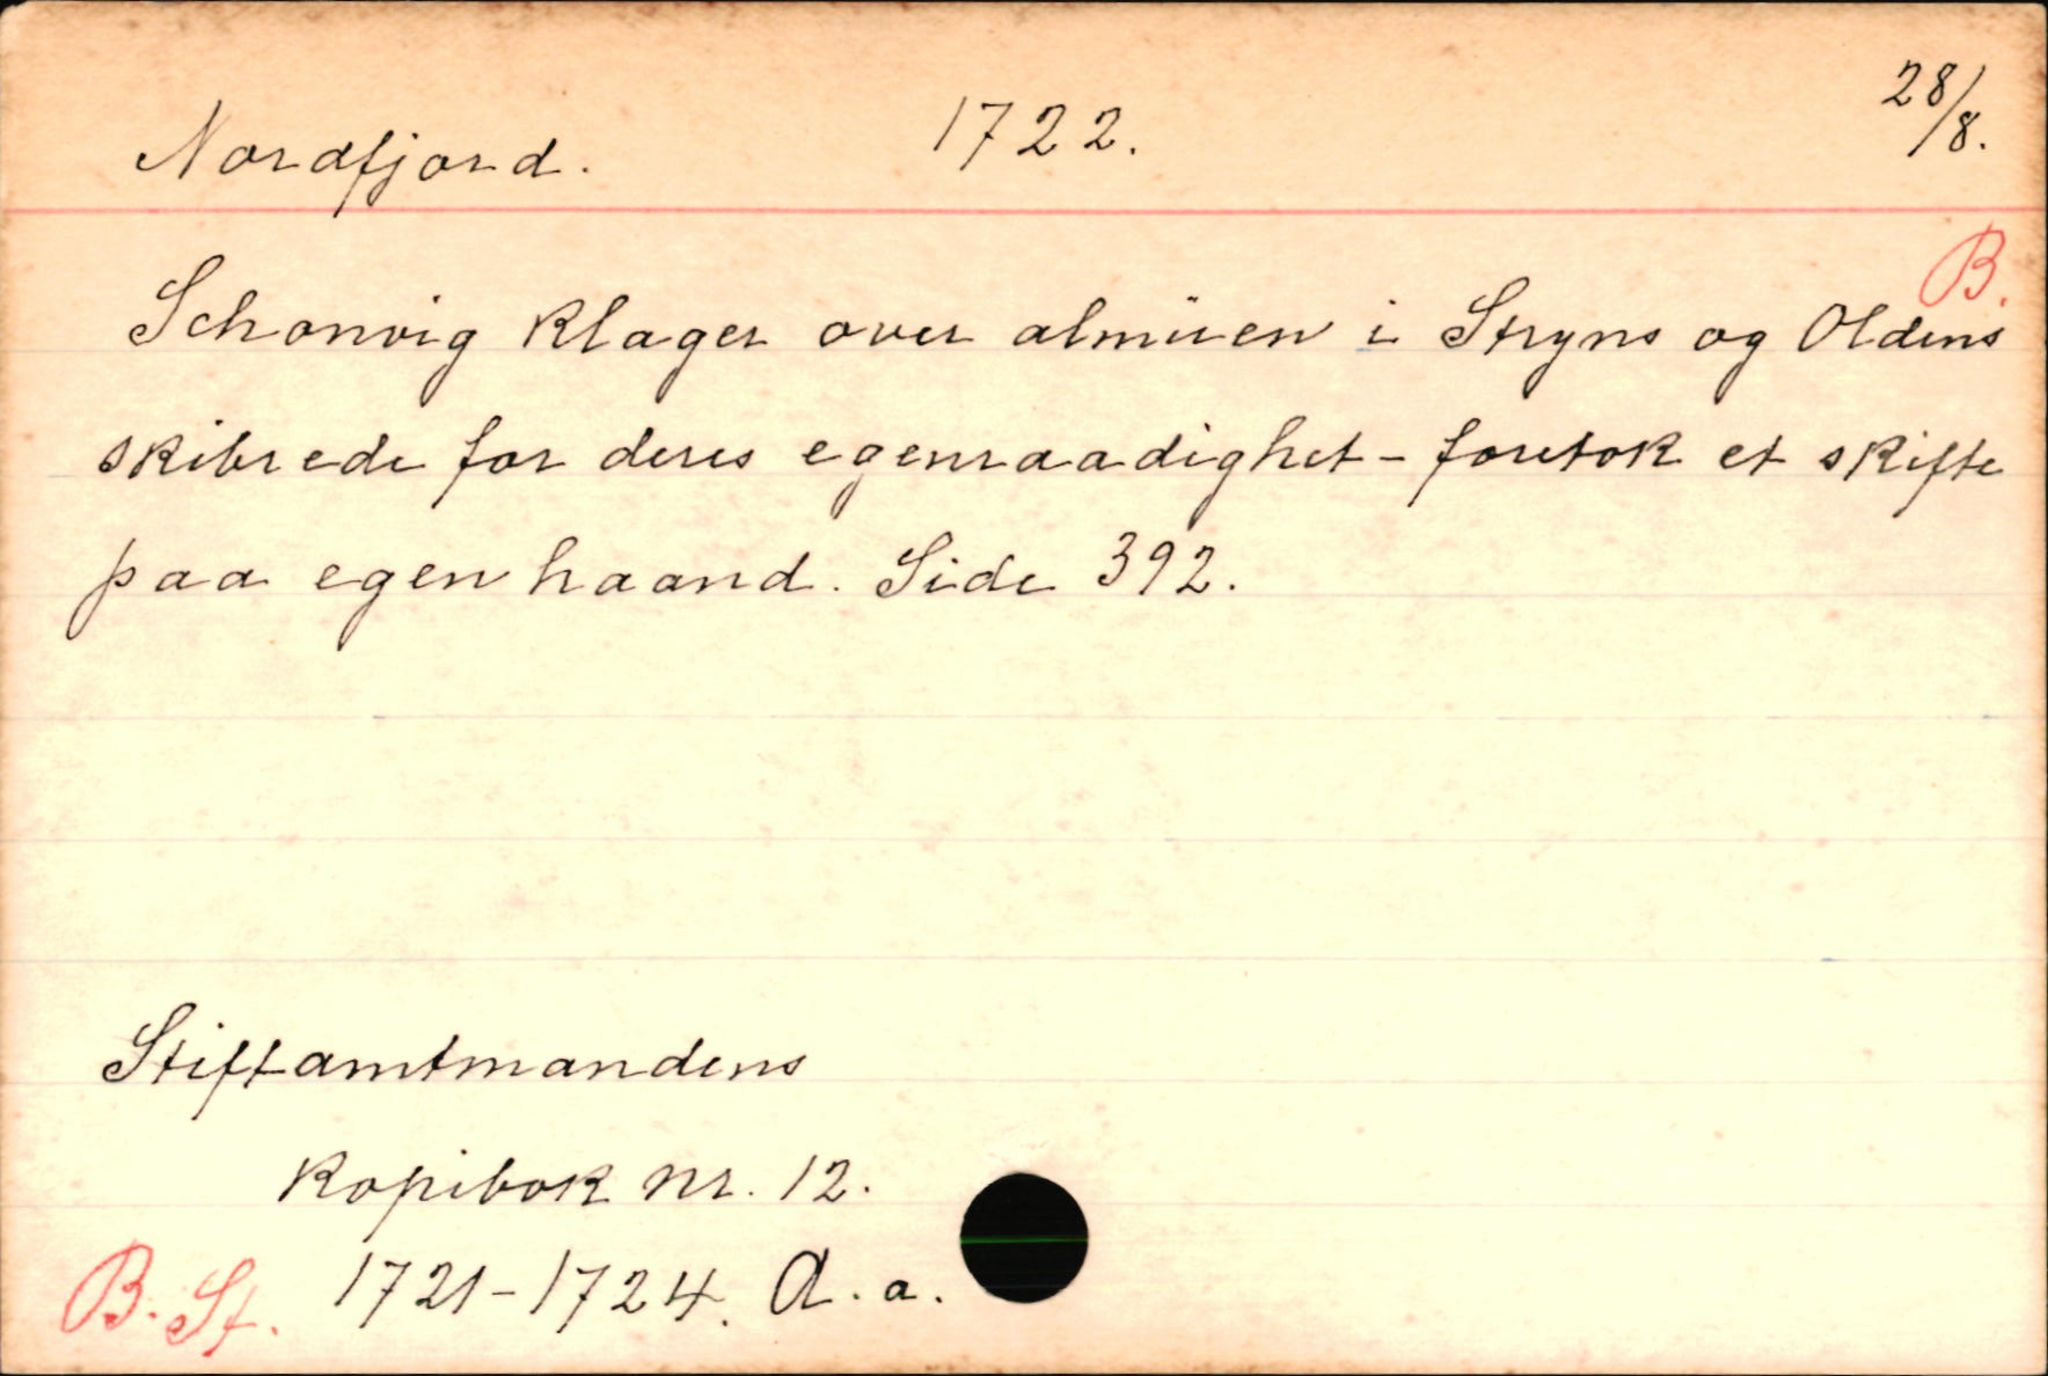 Nordfjord. 1722. 28/8.
B.
Schonvig klager over almüen i Stryns og Oldens
skibrede for deres egenraadighet - foretok et skifte
paa egen haand. Side 392.
Stiftamtmandens
Kopibok nr. 12.
B. St. 1721-1724. A. a.